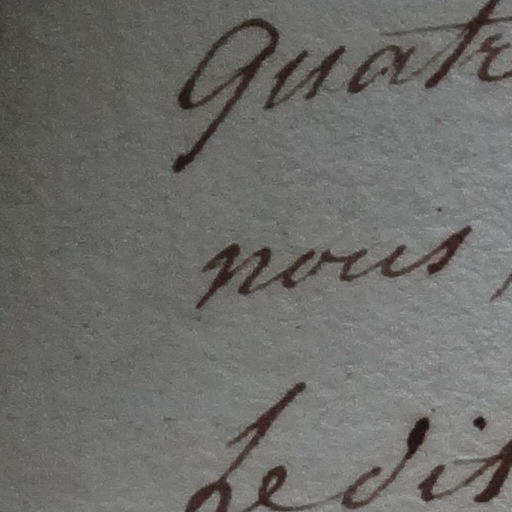 quatr
nous
Ledit